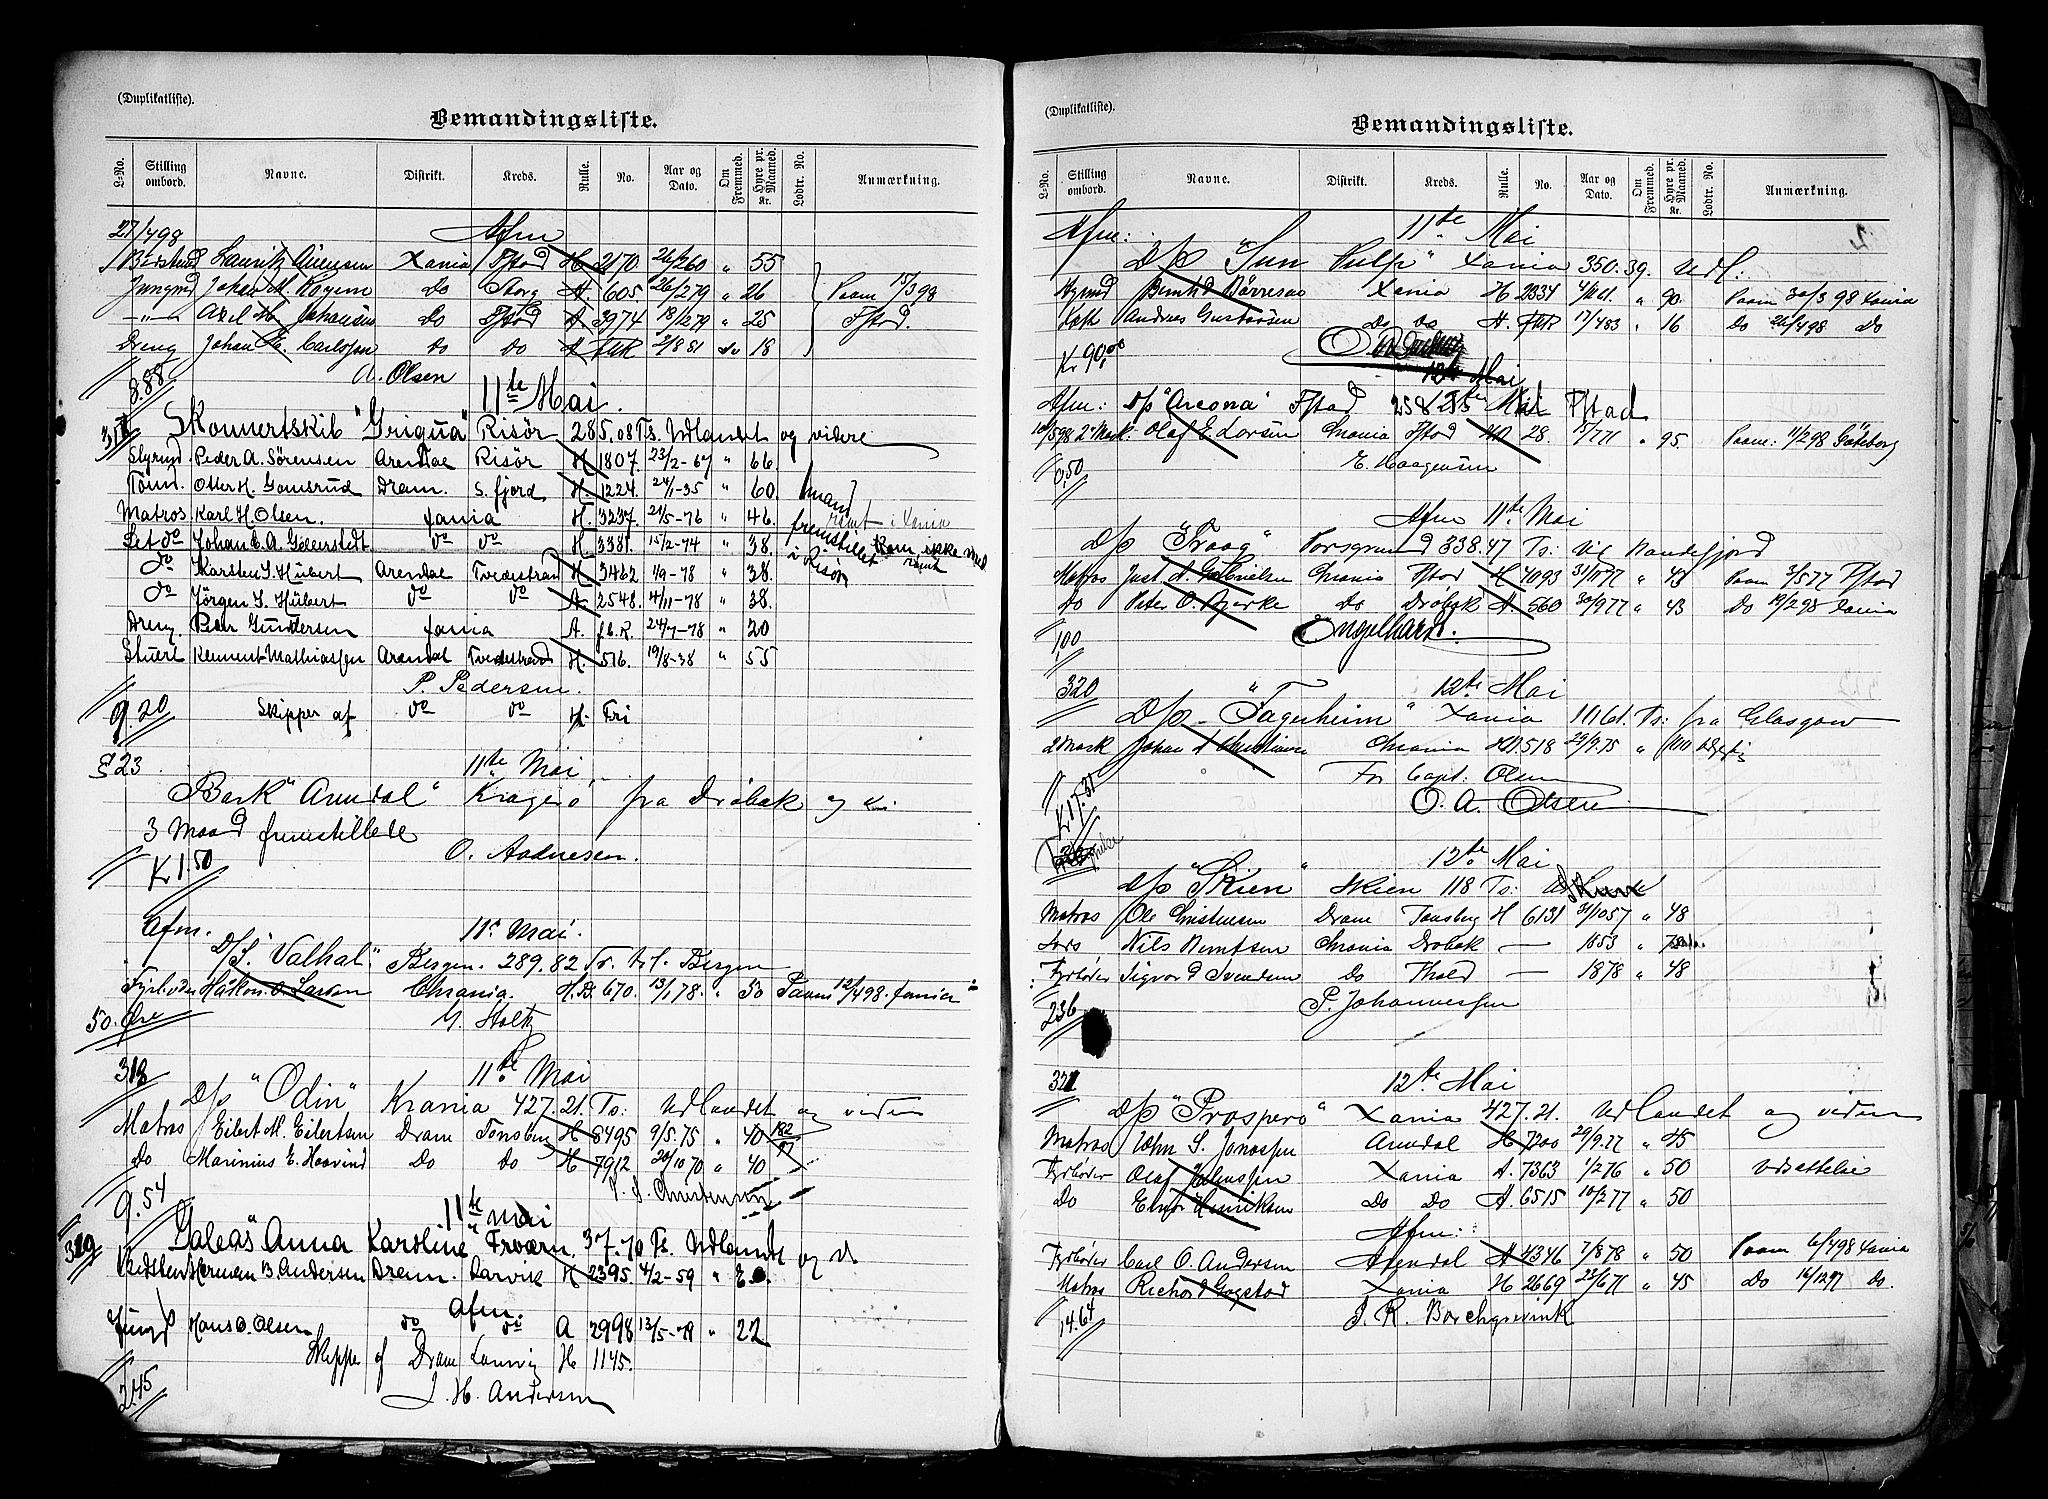 (Duplikatliste).
Bemandingsliste.
L-No. Stilling ombord. Navne. Distrikt. Kreds. Rulle. No. Aar og Dato. Om Fremmed. Hyre pr. Maaned. Kr. Lodtr. No. Anmærkning.
27/4 98 Afm
Lauritz Xania Fstad H 2170 26/2 60 " 55
Jungmd Johan M. do Storg A. 605 26/2 79 " 26 Paam 15/3 98
—"— Axel H. Johansen Do Fstad A 3974 18/2 79 " 25 Fstad.
Dreng Johan E. Carlssen do do A FMR 2/8 81 do 18
8.88 A. Olsen
11te Mai.
Skonnertskib "Griqua" Risör 285.08 Ts. Udlandet og videre
Styrmd Peder A. Sörensen Arendal Risör H 1807. 23/2-67 " 66
Tömm. Otter H. Gomsrud Dram. S. fjord H. 1224. 24/1-35 " 60
Matros. Karl H. Olsen. Xania H. 3237. 21/5-76 " 46.
Let do Johan E. A. do do H 3381. 15/2-74 " 38.
do Karsten S. Hübert Arendal Tvedestrand H 3462 1/9-78 " 38.
do Jörgen S. Hübert do do A. 2548. 4/11-78 " 38.
Dreng. Peder Gundersen Xania A. fb.R. 24/7-78 " 20
Stuert Klement Mathiassen Arendal Tvedestrand H. 516. 19/8-38 " 55
fremstillet i Risör
P. Pedersen.
9.20 Skipper af do do H. Fri
323 11te Mai
Bark "Arendal" Kragerö fra Dröbak og
3 Mand fremstillede
Kr 1.50 O. Aadnesen.
Afm. 11te Mai.
D/S. "Valhal". Bergen. 289.82 Ts. til Bergen
Håkon O. Larsen Chrania. H.D. 670. 13/1 78. " 50 Paam 12/4 98. Xania
50. Øre G. Stoltz
318 11te Mai
D/S "Odin" Krania 427.21. Ts: Udlandet og videre
Matros Eilert M. Eilertsen Dram Tonsberg H 8495 9/5.75 " 40 182/97
Do Marinius E. Hoovind Do Do H 7912 20/10 70 " 40
9.54 Christensen
11te Mai
319 Galeas "Anna Karoline" Tværn. 37.70 Ts. Udlandet og v.
Bedstem Herman B. Andersen Dram. Larvik H 2395. 4/2-59 "
Afm.
Jungd Hans O. Olsen do do A 2998 13/5-78 " 22
Skipper af Dram Laurvig H 1145.
2.45 J. H. Andersen
(Duplikatliste).
Bemandingsliste.
L-No. Stilling ombord. Navne. Distrikt. Kreds. Rulle. No. Aar og Dato. Om Fremmed. Hyre pr. Maaned. Kr. Lodtr. No. Anmærkning.
Afm: 11te Mai
D/S "Sun Xania 350.39. Udl:
Styrmd Bernth. Börresen Xania H 2334 " 90. Paam 30/3 98 Xania
Kok Andreas Gustavsen Do Do A. FMR 17/4 83 " 16 Do 26/4 98 Do
Kr 90,00
12te Mai
Afm: D/S "Arcona" Fstad 258 Mai Fstad
10/5 98 2 Mask. Olaf E. Larsen Chrania Fstad 28. 15/7 71 " 95. Paam: 11/2 98 Göteborg
0,50 E. Haagensen
Afm 11te Mai
D/S "Traag" Porsgrund 338.47 Ts: Sandefjord
Matros Just. A. Gabrielsen Chrania Fstad H 4093 31/10 77 " 43 Paam 2/5 77 Fstad
Do Peter O. Bjerke Do Dröbak A. 560 30/9 77 " 43 Do 19/2 98 Xania
1,00 Engelhardt.
320 12te Mai
D/S "Fagerheim" Xania 1016. Ts: fra Glasgow
2 Mask Johan A Christiansen Chrania HD. 518 29/9.75 " 100
For Capt: Olsen
Kr 17.31 O. A. Olsen
12te Mai
D/S "Skien" Skien 118 Ts:
Matros Ole Christensen Dram Tonsberg H 6131 31/10 57 " 48
Nils Berntsen Chrania Drobak — 1653 "
Fyrböder Sigvard Svendsen Do Thold — 1878 " 48
236 P. Johannessen
321 12te Mai
D/S "Prospero" Xania 427.21. Udlandet og videre
Matros John S. Jonassen Arendal H 7200 29/9.77 " 45
Fyrböder Olaf Xania A. 7363 1/2 76 " 50
Do Henriksen Do Do A 6515 10/2 77 " 50
Afm:
Fyrböder Carl O. Andersen Arendal A 4346 7/8 78 " 50 Paam 6/4 98 Xania
Matros Richard Gogstad Xania H 2669 23/6 71 " 45 Do 16/12 97 Do.
14.64 J. R. Borchgrevink